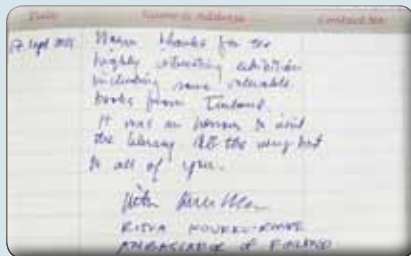 Date Name & Address Contact No
Many thanks for the
highly interesting exhibition
including some valuable
books from Finland.
It was an honour to visit
the library. All the very best
to all of you.
RITVA
AMBASSADOR OF FINLAND